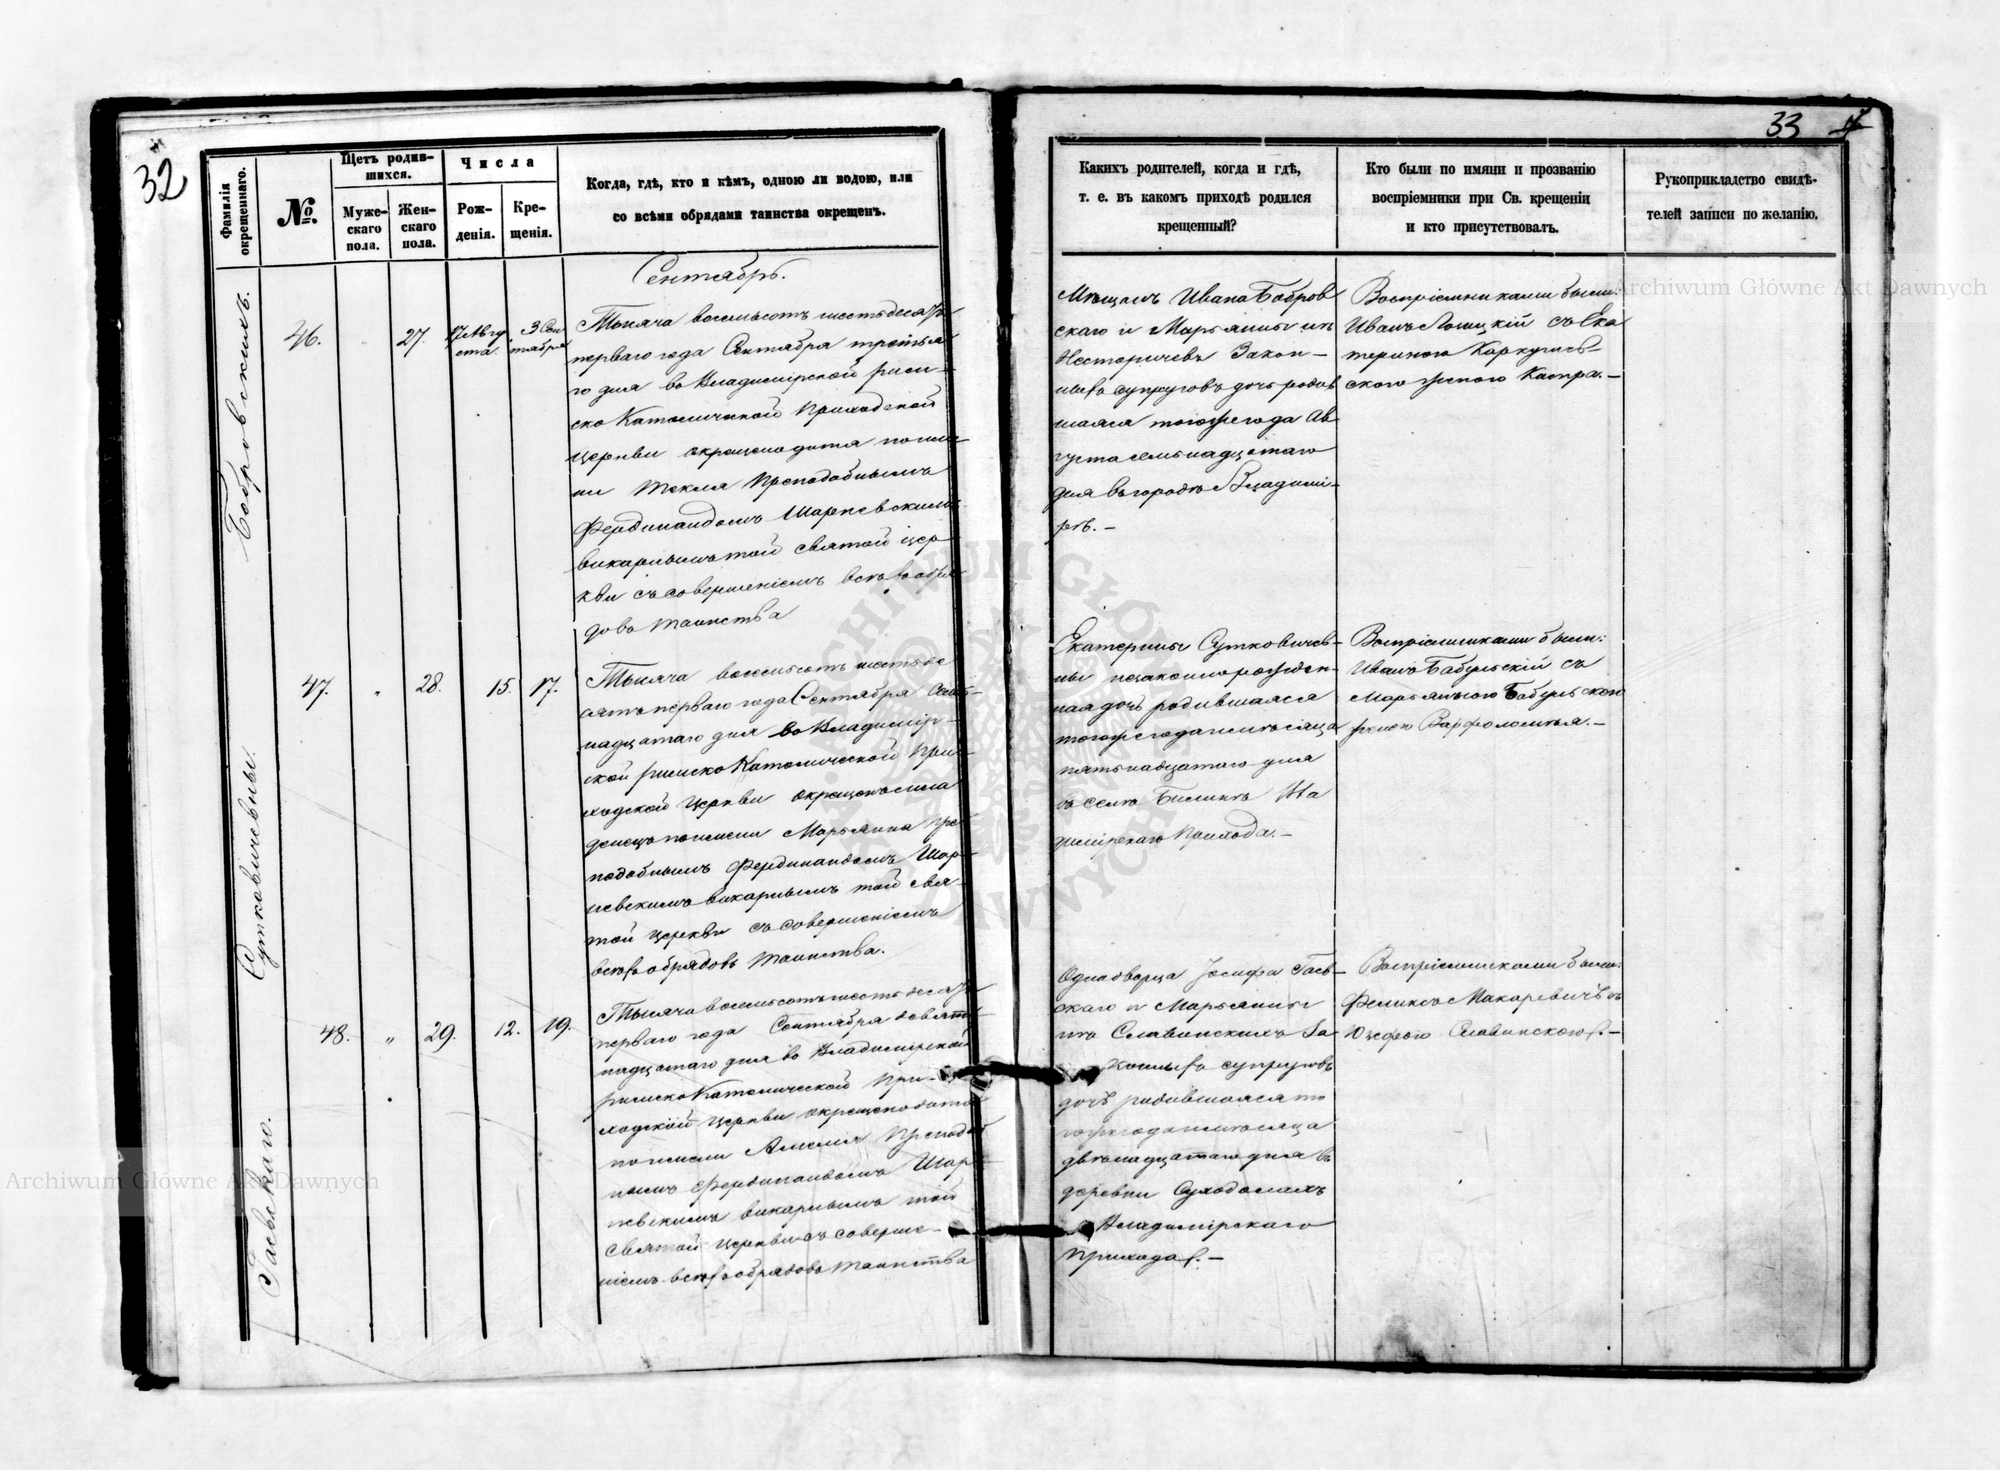 32
Фамилія окрещеннаго.
№.
Щетъ родив-
шихся.
Муже-
скаго
пола.
Жен-
скаго
пола.
Числа
Рож-
денія.
Кре-
щенія.
Когда, гдѣ, кто и кѣмъ, одною ли водою, или
со всѣми обрядами таинства окрещенъ.
Сентябрь.
Бобровскихъ.
46.
27.
17 Авгу
ста.
3 Сен
тября
Тысяча восемьсотъ шестьдесятъ
перваго года Сентября третья
го дня во Владимірской рим-
ско Католической Приходской
Церкви окрещено дитя по име-
ни Текля Преподобнымъ
Фердинандомъ Шарневскимъ
викарнымъ той святой цер-
кви съ совершеніемъ всѣхъ обря
довъ таинства
Сутковичевны.
47.
„
28.
15.
17.
Тысяча восемьсотъ шестьдес
ятъ перваго года Сентября семь-
надцатаго дня во Владимір-
ской римско Католической При-
ходской Церкви окрещенъ
по имени Марьянна Пре-
подобнымъ Фердинандомъ Шар-
невскимъ викарнымъ той свя-
той церкви съ совершеніемъ
всѣхъ обрядовъ таинства.
Гаевскаго.
48.
„
29.
12.
19.
Тысяча восемьсотъ шестьдесятъ
перваго года Сентября девят-
надцатаго дня во Владимірской
римско Католической При-
ходской Церкви окрещено дитя
по имени Амелія Преподоб
нымъ Фердинандомъ Шар-
невскимъ викарнымъ той
святой церкви съ соверше-
ніемъ всѣхъ обрядовъ таинства
33
Какихъ родителей, когда и гдѣ,
т. е. въ какомъ приходѣ родился
крещенный?
Кто были по имяни и прозванію
воспріемники при Св. крещеніи
и кто присутствовалъ.
Рукоприкладство свидѣ-
телей записи по желанію.
Мѣщанъ Ивана Бобров
скаго и Марьянны изъ
Несторичевъ Закон-
ныхъ супруговъ дочь родив
шаяся тогожъ года Ав-
густа семьнадцатаго
дня въ городѣ Владимі-
рѣ.-
Воспріемниками были:
Иванъ съ Ека
териною
Екатерины Сутковичев-
ны незаконнорожден-
ная дочь родившаяся
тогожъ года и мѣсяца
пятьнадцатаго дня
въ селѣ Влa
димірскаго Прихода.-
Воспріемниками были:
Иванъ Бабульскій съ
Марьянною Бабульскою
женою Варфоломея.-
Однодворца Іосифа Гаев-
скаго и Марьянны
изъ Славинскихъ За
конныхъ супруговъ
дочь родившаяся то
гожъ года и мѣсяца
двѣнадцатаго дня въ
деревни Суходолахъ
Владимірскаго
Прихода.-
Воспріемниками были:
Феликсъ Макаревичъ съ
Юзефою Славинскою.-
Archiwum Główne Akt Dawnych
Archiwum Główne Akt Dawnych
ARCHIWUM GŁÓWNE AKT DAWNYCH